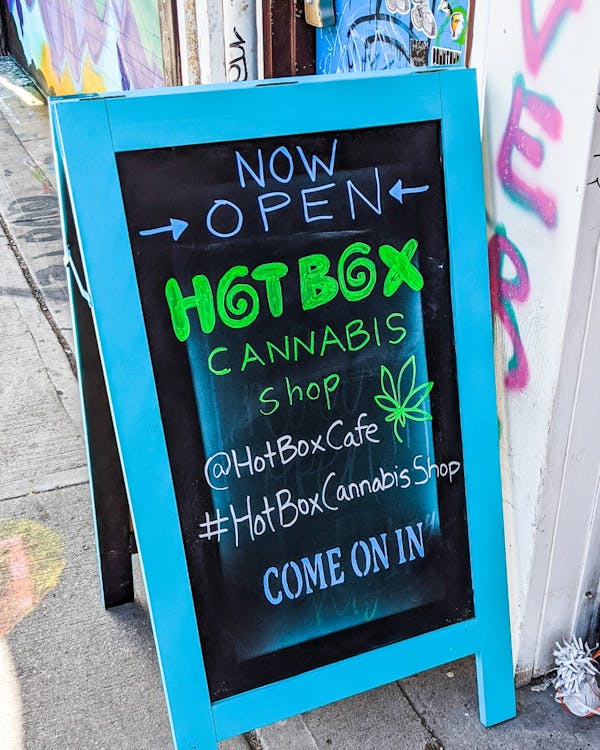 NOW
→ OPEN ←
HOTBOX
CANNABIS
Shop
@HotBoxCafe
#HotBoxCannabisShop
COME ON IN